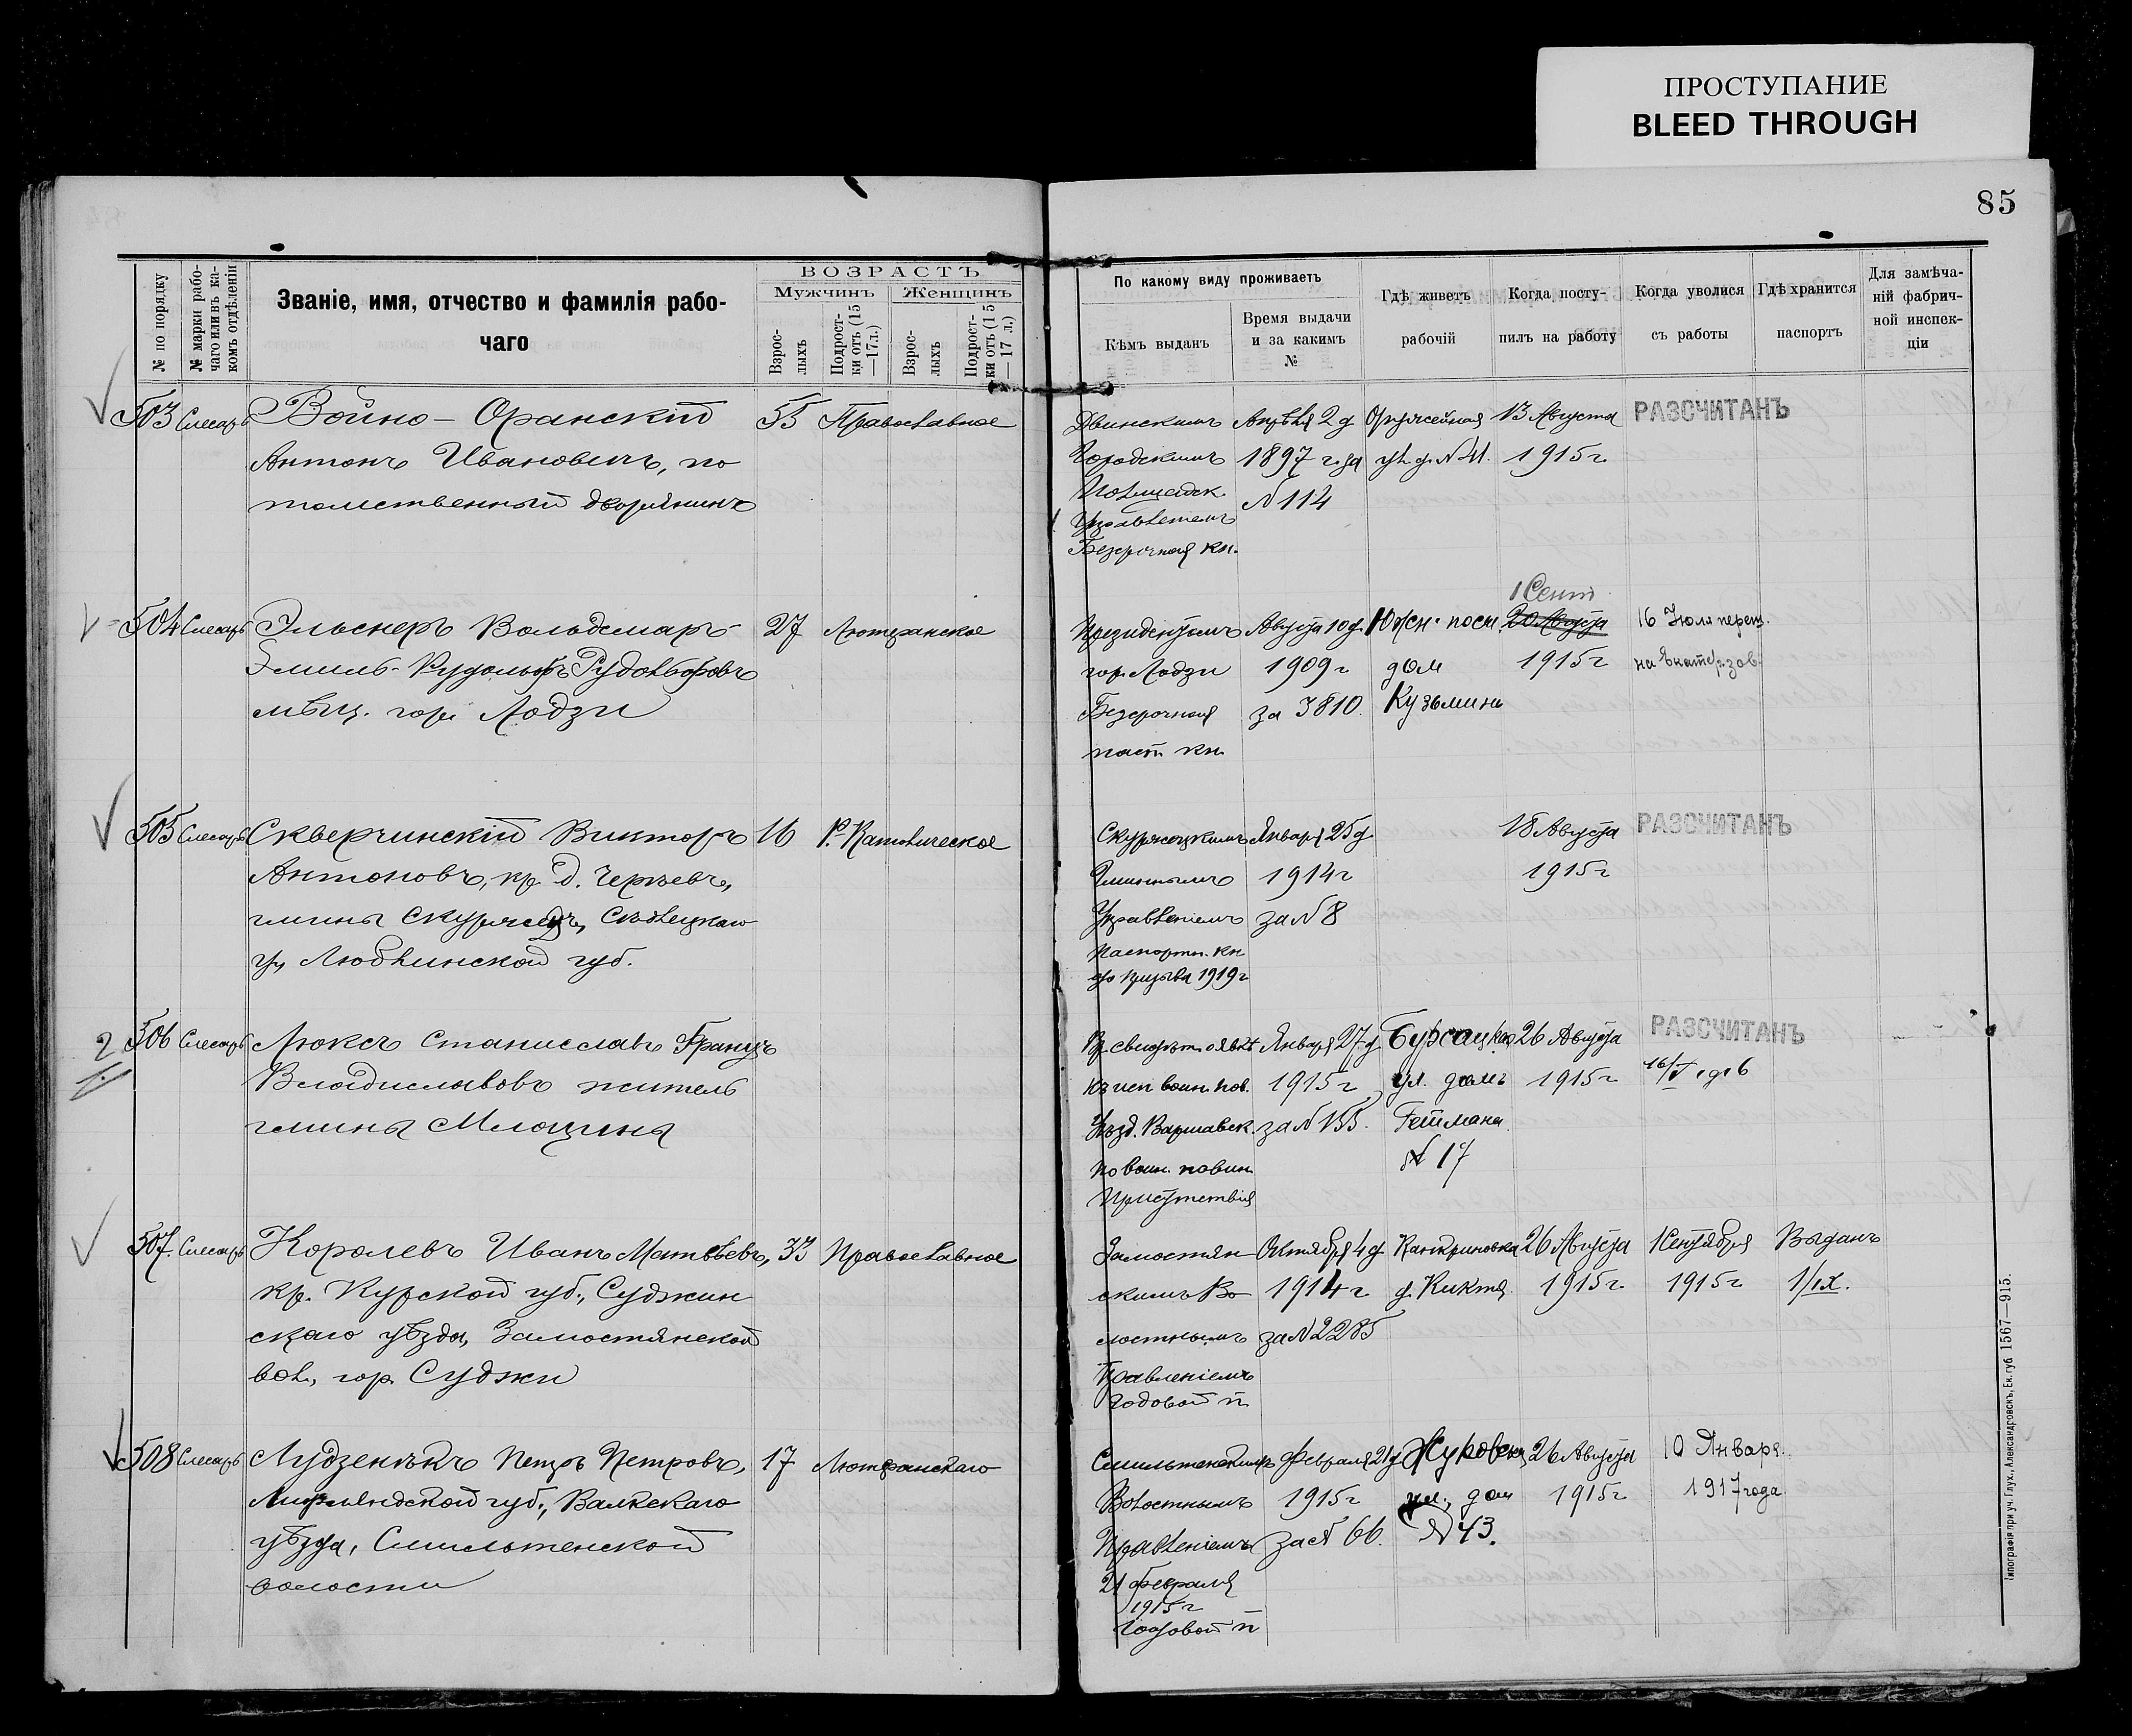 ПРОСТУПАНИЕ
BLEED THROUGH
85
№ по порядку
№ марки рабо-
чаго или въ ка-
комъ отдѣленіи
Званіе, имя, отчество и фамилія рабо-
чаго
ВОЗРАСТЪ
Мужчинъ
Женщинъ
Взрос-
лыхъ
Подрост-
ки отъ (15
—17 л.)
Взрос-
лыхъ
Подрост-
ки отъ (15
— 17 л.)
По какому виду проживаетъ
Кѣмъ выданъ
Время выдачи
и за какимъ
№
Гдѣ живетъ
рабочій
Когда посту-
пилъ на работу
Когда уволися
съ работы
Гдѣ хранится
паспортъ
Для замѣча-
ній фабрич-
ной инспек-
ціи
503 Слесарь
Войно - Оранскій
Антонъ Ивановичъ, по
томственный дворянинъ
55 Православное
Двинскимъ
Городскимъ
Полицейск.
Управленіемъ
Безсрочная кн.
Апрѣля 2 д
1897 года
№ 114
Оружейная
ул. д. № 41.
13 Августа
1915 г
РАЗСЧИТАНЪ
504 Слесарь
Эльснеръ Вольдемаръ-
Эмиль-Рудольфъ Рудольфовъ
мѣщ. гор. Лодзи
27 Лютеранское
Президентомъ
гор. Лодзи
Безсрочная
пасп. кн.
Августа 10 д.
1909 г
за 3810.
Южн. посел.
дом
Кузьмина
1 Сент
20 Августа
1915 г
16 Іюля перев.
на Екатер. зав.
505 Слесарь
Скверчинскій Викторъ
Антоновъ, кр. д. Чернѣевъ,
гмины Скуржецъ, Сѣдлецкаго
у., Люблинской губ.
16 Р. Католическое
Скуржецкимъ
Гминнымъ
Управленіемъ
Паспортн. кн
до призыва 1919 г
Января 25 д
1914 г
за № 8
18 Августа
1915 г
РАЗСЧИТАНЪ
506 Слесарь
Люксъ Станиславъ Францъ
Владиславовъ житель
гмины Млоцины
Вр. свидѣт. о явкѣ
къ исп. воин. пов.
Уѣзд. Варшавск.
по воин. повин.
Присутствія
Января 27 д
1915 г
за № 155.
Бурсацкая
ул. домъ
Гетмана
№ 17
26 Августа
1915 г
РАЗСЧИТАНЪ
507. Слесарь
Королевъ Иванъ Матвѣевъ,
кр. Курской губ., Суджин
скаго уѣзда, Замостянской
вол., гор. Суджи
33 Православное
Замостян
скимъ Во
лостнымъ
Правленіемъ
Годовой п.
Октября 4 д
1914 г
за № 2285
Канкриновка
д. Киктя
26 Августа
1915 г
1 Сентября
1915 г
Выданъ
1/IX.
508 Слесарь
Лудзенѣкъ Петръ Петровъ,
Лифляндской губ., Валкскаго
уѣзда, Смильтенской
волости
17 Лютеранскаго
Смильтенскимъ
Волостнымъ
Правленіемъ
21 Февраля
1915 г
Годовой п
Февраля 21 д
1915 г
за № 66.
Жуковск.
ул., дом
№ 43.
26 Августа
1915 г
10 Января.
1917 года
Типографія при уч. Глух., Александровскъ, Ек. губ 1567—915.